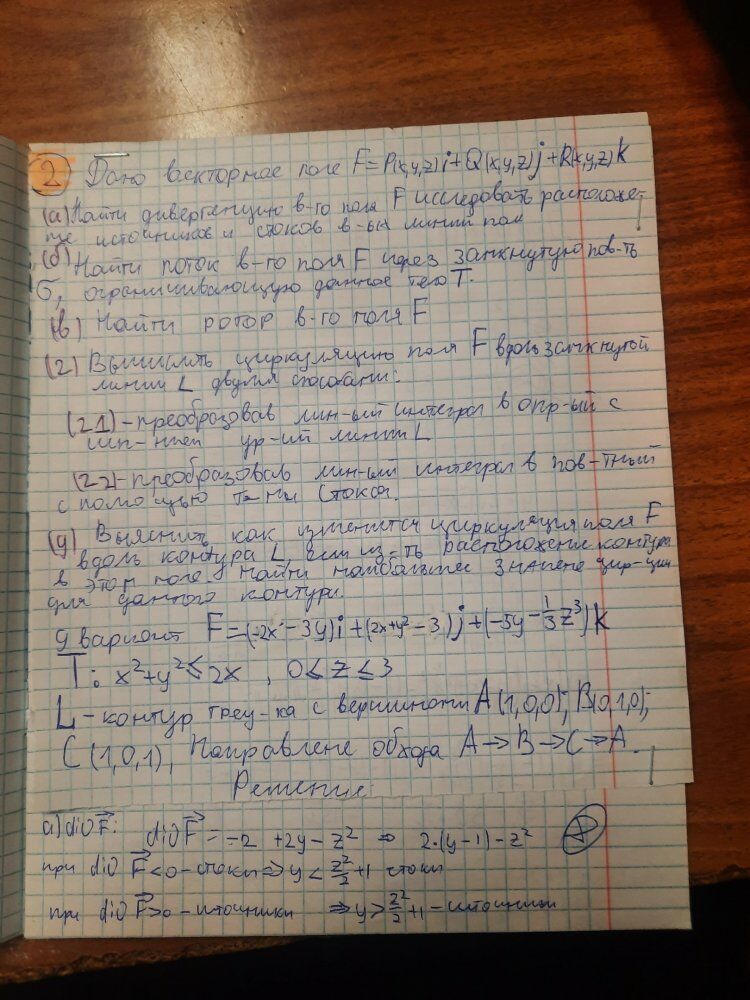 2 Дано векторное поле F=P(x,y,z)i+Q(x,y,z)j+R(x,y,z)k
(а) Найти дивергенцию в-го поля F исследовать расположе-
ние источников и стоков в-ых линий поля
(б) Найти поток в-го поля F через замкнутую пов-ть
б, ограничивающую данное тело T.
(в) Найти ротор в-го поля F
(2) Вычислить циркуляцию поля F вдоль замкнутой
линии L двумя способами:
(21)-преобразовав лин-ый интеграл в опр-ый с
ур-ий линии L
(22-преобразовав лин-ый интеграл в пов-тный
с помощью Стокса.
(g) Выяснить как изменится циркуляция поля F
вдоль контура L если из-ть расположение контура
в этом поле. Найти наибольшее значение цир-ции
для данного контура.
9 вариант F=(-2x-3y)i+(2x+y²-3)j+(-5y-1/3z³)k
T: x²+y²≤2x, 0≤z≤3
L-контур треу-ка с вершинами A(1,0,0); B(0,1,0);
C(1,0,1), Направлене обхода A→B→C→A.
Решение
а) div F⃗: div F⃗ = -2 +2y-z² ⇒ 2·(y-1)-z²
при div F⃗<0-стоки⇒y<z²/2+1 стоки
при div F⃗>0-источники ⇒y>z²/2+1-источники